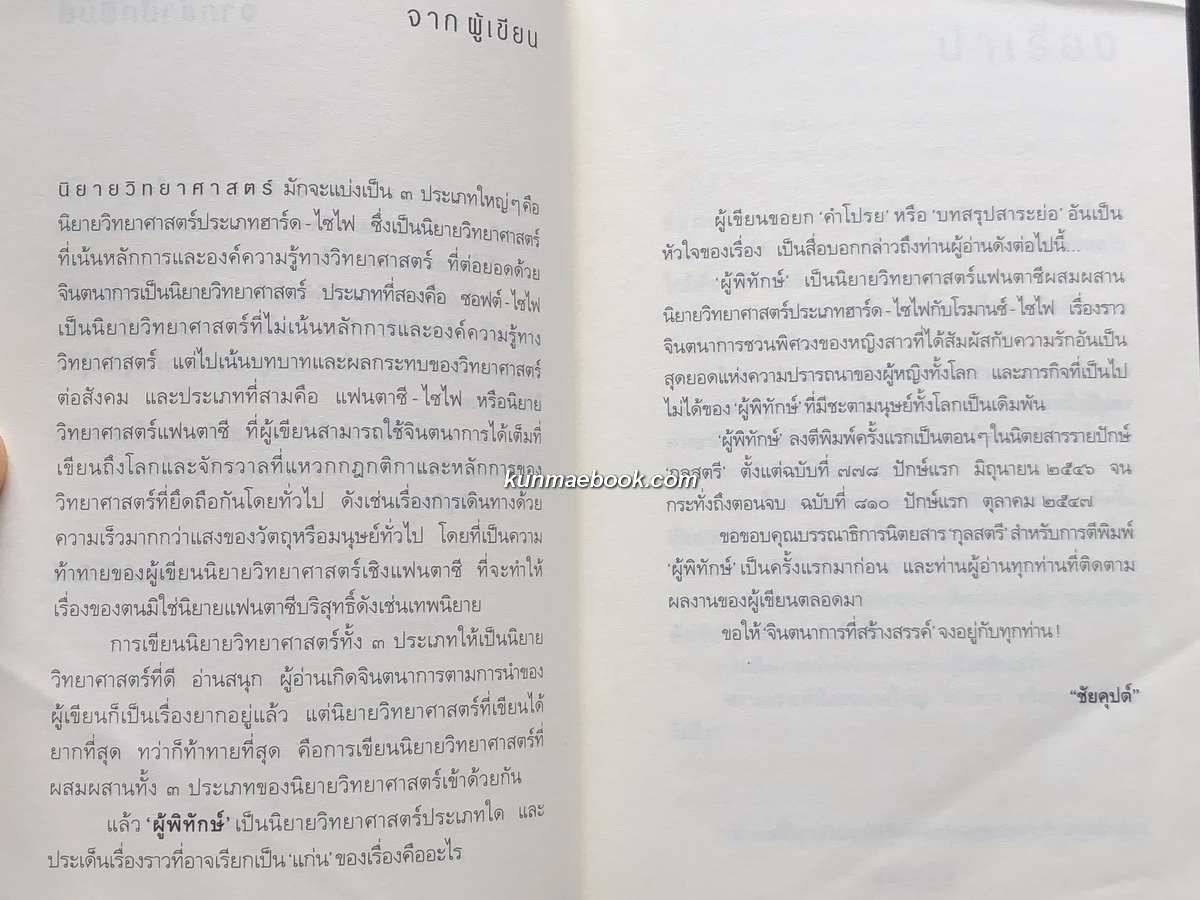 จาก ผู้เขียน
นิยายวิทยาศาสตร์ มักจะแบ่งเป็น ๓ ประเภทใหญ่ๆ คือ
นิยายวิทยาศาสตร์ประเภทฮาร์ด - ไซไฟ ซึ่งเป็นนิยายวิทยาศาสตร์
ที่เน้นหลักการและองค์ความรู้ทางวิทยาศาสตร์ ที่ต่อยอดด้วย
จินตนาการเป็นนิยายวิทยาศาสตร์ ประเภทที่สองคือ ซอฟต์ - ไซไฟ
เป็นนิยายวิทยาศาสตร์ที่ไม่เน้นหลักการและองค์ความรู้ทาง
วิทยาศาสตร์ แต่ไปเน้นบทบาทและผลกระทบของวิทยาศาสตร์
ต่อสังคม และประเภทที่สามคือ แฟนตาซี - ไซไฟ หรือนิยาย
วิทยาศาสตร์แฟนตาซี ที่ผู้เขียนสามารถใช้จินตนาการได้เต็มที่
เขียนถึงโลกและจักรวาลที่แหวกกฎกติกาและหลักการของ
วิทยาศาสตร์ที่ยึดถือกันโดยทั่วไป ดังเช่นเรื่องการเดินทางด้วย
ความเร็วมากกว่าแสงของวัตถุหรือมนุษย์ทั่วไป โดยที่เป็นความ
ท้าทายของผู้เขียนนิยายวิทยาศาสตร์เชิงแฟนตาซี ที่จะทำให้
เรื่องของตนมิใช่นิยายแฟนตาซีบริสุทธิ์ดังเช่นเทพนิยาย
การเขียนนิยายวิทยาศาสตร์ทั้ง ๓ ประเภทให้เป็นนิยาย
วิทยาศาสตร์ที่ดี อ่านสนุก ผู้อ่านเกิดจินตนาการตามการนำของ
ผู้เขียนก็เป็นเรื่องยากอยู่แล้ว แต่นิยายวิทยาศาสตร์ที่เขียนได้
ยากที่สุด ทว่าก็ท้าทายที่สุด คือการเขียนนิยายวิทยาศาสตร์ที่
ผสมผสานทั้ง ๓ ประเภทของนิยายวิทยาศาสตร์เข้าด้วยกัน
แล้ว ‘ผู้พิทักษ์’ เป็นนิยายวิทยาศาสตร์ประเภทใด และ
ประเด็นเรื่องราวที่อาจเรียกเป็น ‘แก่น’ ของเรื่องคืออะไร
ผู้เขียนขอยก ‘คำโปรย’ หรือ ‘บทสรุปสาระย่อ’ อันเป็น
หัวใจของเรื่อง เป็นสื่อบอกกล่าวถึงท่านผู้อ่านดังต่อไปนี้...
‘ผู้พิทักษ์’ เป็นนิยายวิทยาศาสตร์แฟนตาซีผสมผสาน
นิยายวิทยาศาสตร์ประเภทฮาร์ด - ไซไฟกับโรมานซ์ - ไซไฟ เรื่องราว
จินตนาการชวนพิศวงของหญิงสาวที่ได้สัมผัสกับความรักอันเป็น
สุดยอดแห่งความปรารถนาของผู้หญิงทั้งโลก และภารกิจที่เป็นไป
ไม่ได้ของ ‘ผู้พิทักษ์’ ที่มีชะตามนุษย์ทั้งโลกเป็นเดิมพัน
‘ผู้พิทักษ์’ ลงตีพิมพ์ครั้งแรกเป็นตอนๆ ในนิตยสารรายปักษ์
‘กุลสตรี’ ตั้งแต่ฉบับที่ ๗๗๘ ปักษ์แรก มิถุนายน ๒๕๔๖ จน
kunmaebook.com
กระทั่งถึงตอนจบ ฉบับที่ ๘๑๐ ปักษ์แรก ตุลาคม ๒๕๔๗
ขอขอบคุณบรรณาธิการนิตยสาร ‘กุลสตรี’ สำหรับการตีพิมพ์
‘ผู้พิทักษ์’ เป็นครั้งแรกมาก่อน และท่านผู้อ่านทุกท่านที่ติดตาม
ผลงานของผู้เขียนตลอดมา
ขอให้ ‘จินตนาการที่สร้างสรรค์’ จงอยู่กับทุกท่าน !
“ชัยคุปต์”